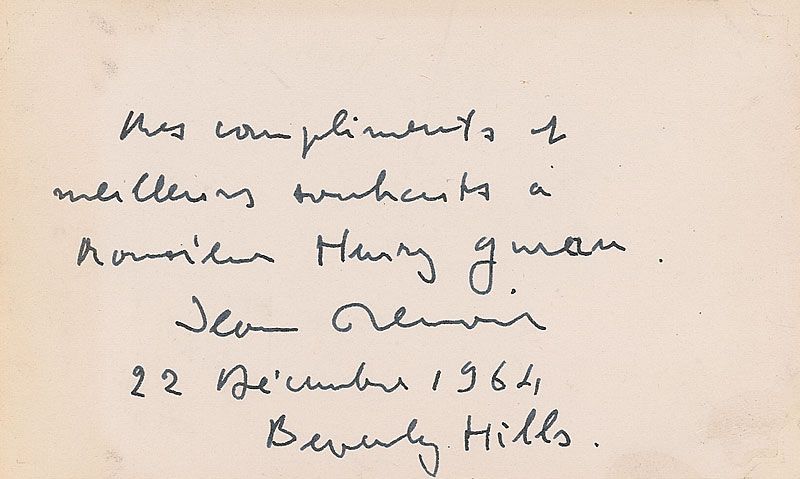 Mes compliments et
meilleurs souhaits à
Monsieur Henry
Jean Renoir
22 Décembre 1964
Beverly Hills.